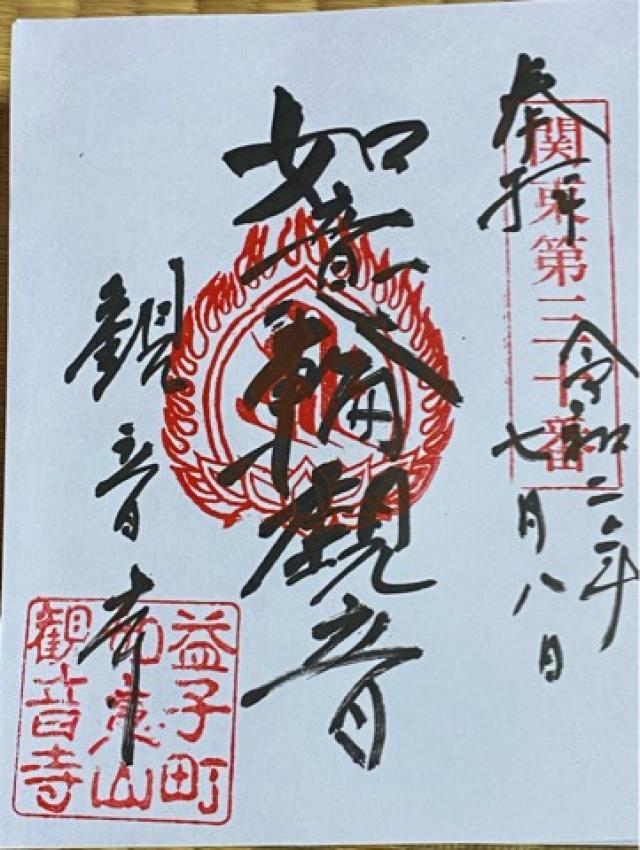 奉拝
関東第三十番
令和二年
七月八日
如意輪観音
観音寺
益子町
如意山
観音寺